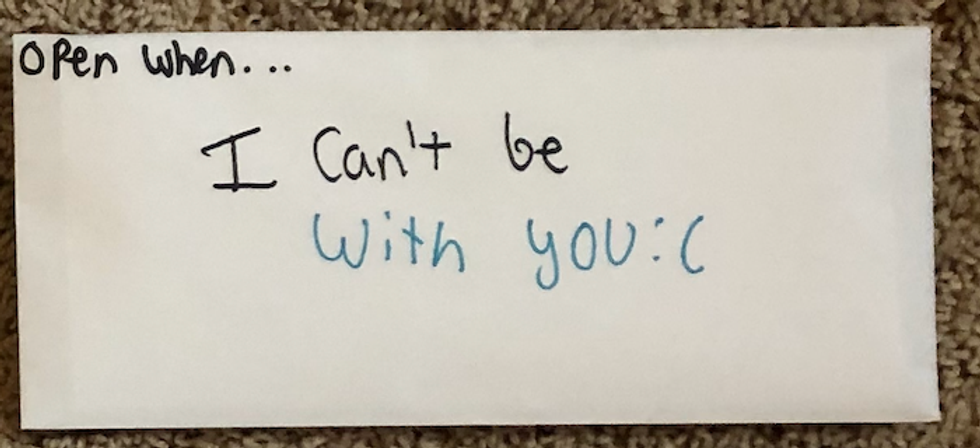 Open when...
I can't be
with you :(